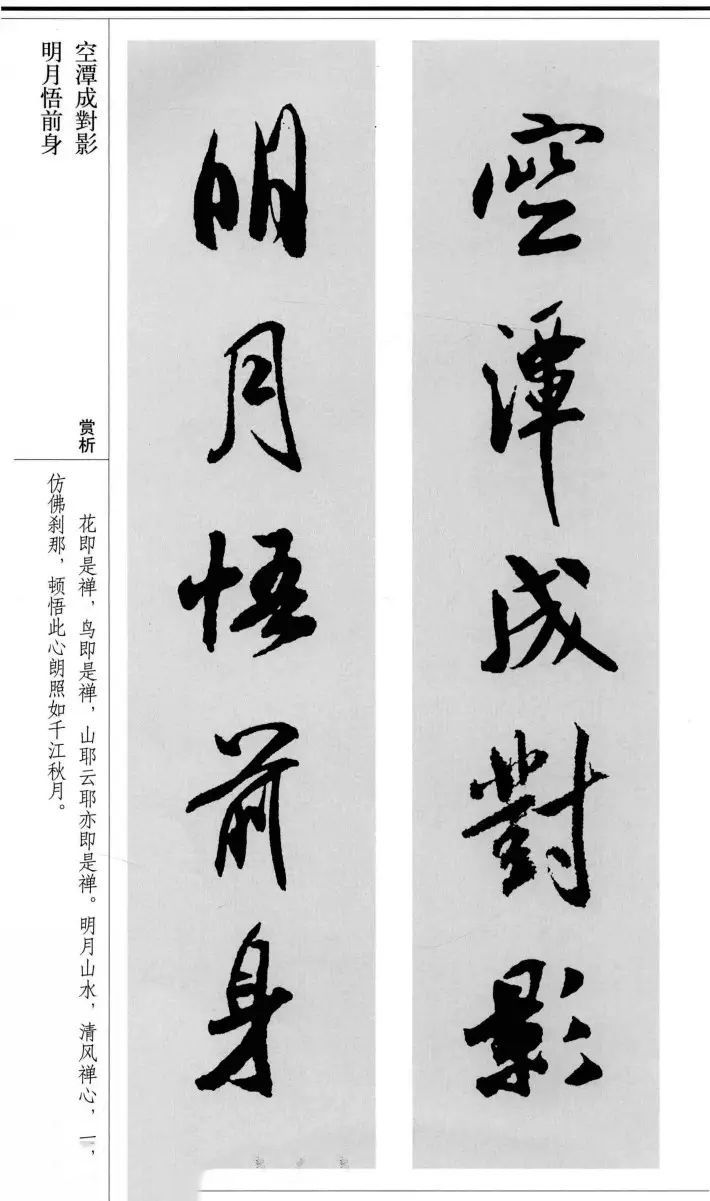 空潭成對影
明月悟前身
空潭成對影
明月悟前身
赏析
花即是禅，鸟即是禅，山耶云耶亦即是禅。明月山水，清风禅心，一，
仿佛刹那，顿悟此心朗照如千江秋月。